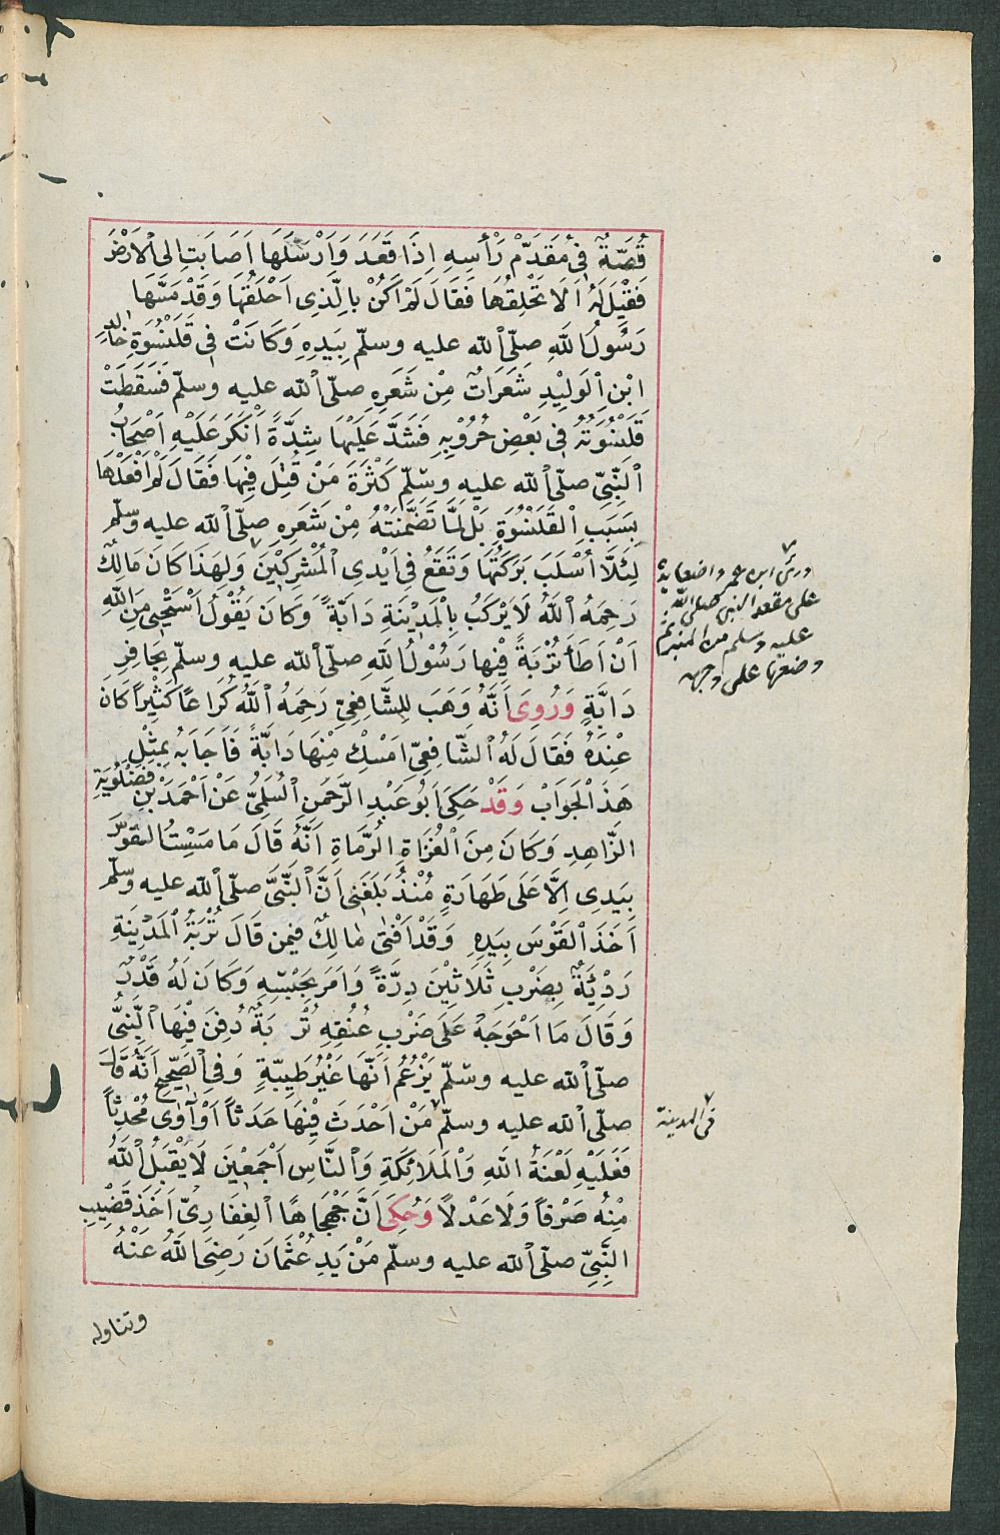 قُصَّةٌ فِي مُقَدَّمْ رَأْسِهِ اِذَا قَعَدَ وَاَرْسَلَهَا اَصَابَتِ الى الْاَرْضَ
فَقِيْلَ لَهُ اَلَا تَحْلِقُهَا فَقَالَ لَمْ اَكُنْ بِالَّذِى اَحْلَقُهَا وَقَدْ مَسَّهَا
رَسُولُ اللَّهِ صلّى الله عليه وسلّم بِيَدِهِ وَكَانَتْ فِى قَلَنْسُوَةِ خَالِدِ
ابْنِ الْوَلِيْدِ شَعَرَاتٌ مِنْ شَعَرِهِ صلّى الله عليه وسلّم فَسَقَطَتْ
قَلَنْسُوَتُهُ فِى بَعْضِ حُرُوْبِهِ فَشَدَّ عَلَيْهَا شِدَّةً اَنْكَرَ عَلَيْهِ اَصْحَابُ
النَّبِيِّ صلّى الله عليه وسلّم كَثْرَةَ مَنْ قُتِلَ فِيْهَا فَقَالَ لَمْ اَفْعَلْهَا
بِسَبَبِ الْقَلَنْسُوَةِ بَلْ لِمَا تَضَمَّنَتْهُ مِنْ شَعَرِهِ صلّى الله عليه وسلّم
لِئَلَّا اُسْلَبَ بَرَكَتَهَا وَتَقَعُ فِى اَيْدِى الْمُشْرِكِيْنَ وَلِهَذَا كَانَ مَالِكٌ
رَحِمَهُ اللَّهُ لَا يَرْكَبُ بِالْمَدِيْنَةِ دَابَّةً وَكَانَ يَقُوْلُ اَسْتَحْيِى مِنَ اللَّهِ
اَنْ اَطَأَ تُرْبَةً فِيْهَا رَسُوْلُ اللَّهِ صلّى الله عليه وسلّم بِحَافِرِ
دَابَّةٍ وَرُوِىَ اَنَّهُ وَهَبَ لِلشَّافِعِيِّ رَحِمَهُ اللَّهُ كُرَاعًا كَثِيْرًا كَانَ
عِنْدَهُ فَقَالَ لَهُ الشَّافِعِيّ امَسْكِ مِنْهَا دَابَّةً فَاَجَابَهُ بِمِثْلِ
هَذَ الْجَوَابْ وَقَدْ حَكَى اَبُو عَبْدِ الرَّحْمَنِ السُّلَمِيُّ عَنْ اَحْمَدَ بْنِ فَضْلَوَيْهِ
الزَّاهِدِ وَكَانَ مِنَ الْغُزَاةِ الرُّمَاةِ اَنَّهُ قَالَ مَا مَسِسْتُ القَوْسَ
بِيَدِى اِلَّا عَلَى طَهَارَةٍ مُنْذُ بَلَغَنِى اَنَّ النَّبِيَّ صلّى الله عليه وسلّم
اَخَذَ الْقَوْسَ بِيَدِهِ وَقَدْ اَفْتَى مَالِكٌ فيمن قَالَ تُرْبَةُ الْمَدِيْنَةِ
رَدِيْئَةٌ بِضَرْبِ ثَلَاثِيْنَ دِرَّةً وَاَمَرَ بِحَبْسِهِ وَكَانَ لَهُ قَدْرٌ
وَقَالَ مَا اَحْوَجَهُ عَلَى ضَرْبِ عُنُقِهِ تُرْبَةٌ دُفِنَ فِيْهَا النَّبِيُّ
صلّى الله عليه وسلّم يَزْعُمُ اَنَّهَا غَيْرُ طَيِّبَةٍ وَفِى الصَّحِيْحِ اَنَّهُ قَالَ
صلّى الله عليه وسلّم مَنْ اَحْدَثَ فِيْهَا حَدَثًا اَوْ آوٰى مُحْدِثًا
فَعَلَيْهِ لَعْنَةُ اللَّهِ وَالْمَلَائِكَةِ وَالنَّاسِ اَجْمَعِيْنَ لَا يُقْبَلُ اللَّهُ
مِنْهُ صَرْفًا وَلَا عَدْلًا وَحُكِىَ اَنَّ جَهْجَاهًا الْغِفَارِيّ اَخَذَ قَضِيْبَ
النَّبِيِّ صلّى الله عليه وسلّم مَنْ يَدِ عُثْمَانَ رَضِىَ اللَّهُ عَنْهُ
وتناوله
ورئى ابن عمر واضعا يده
على مقعد النبى صلى الله
عليه وسلم من المنبر ثم
وضعها على وجهه
فى المدينة